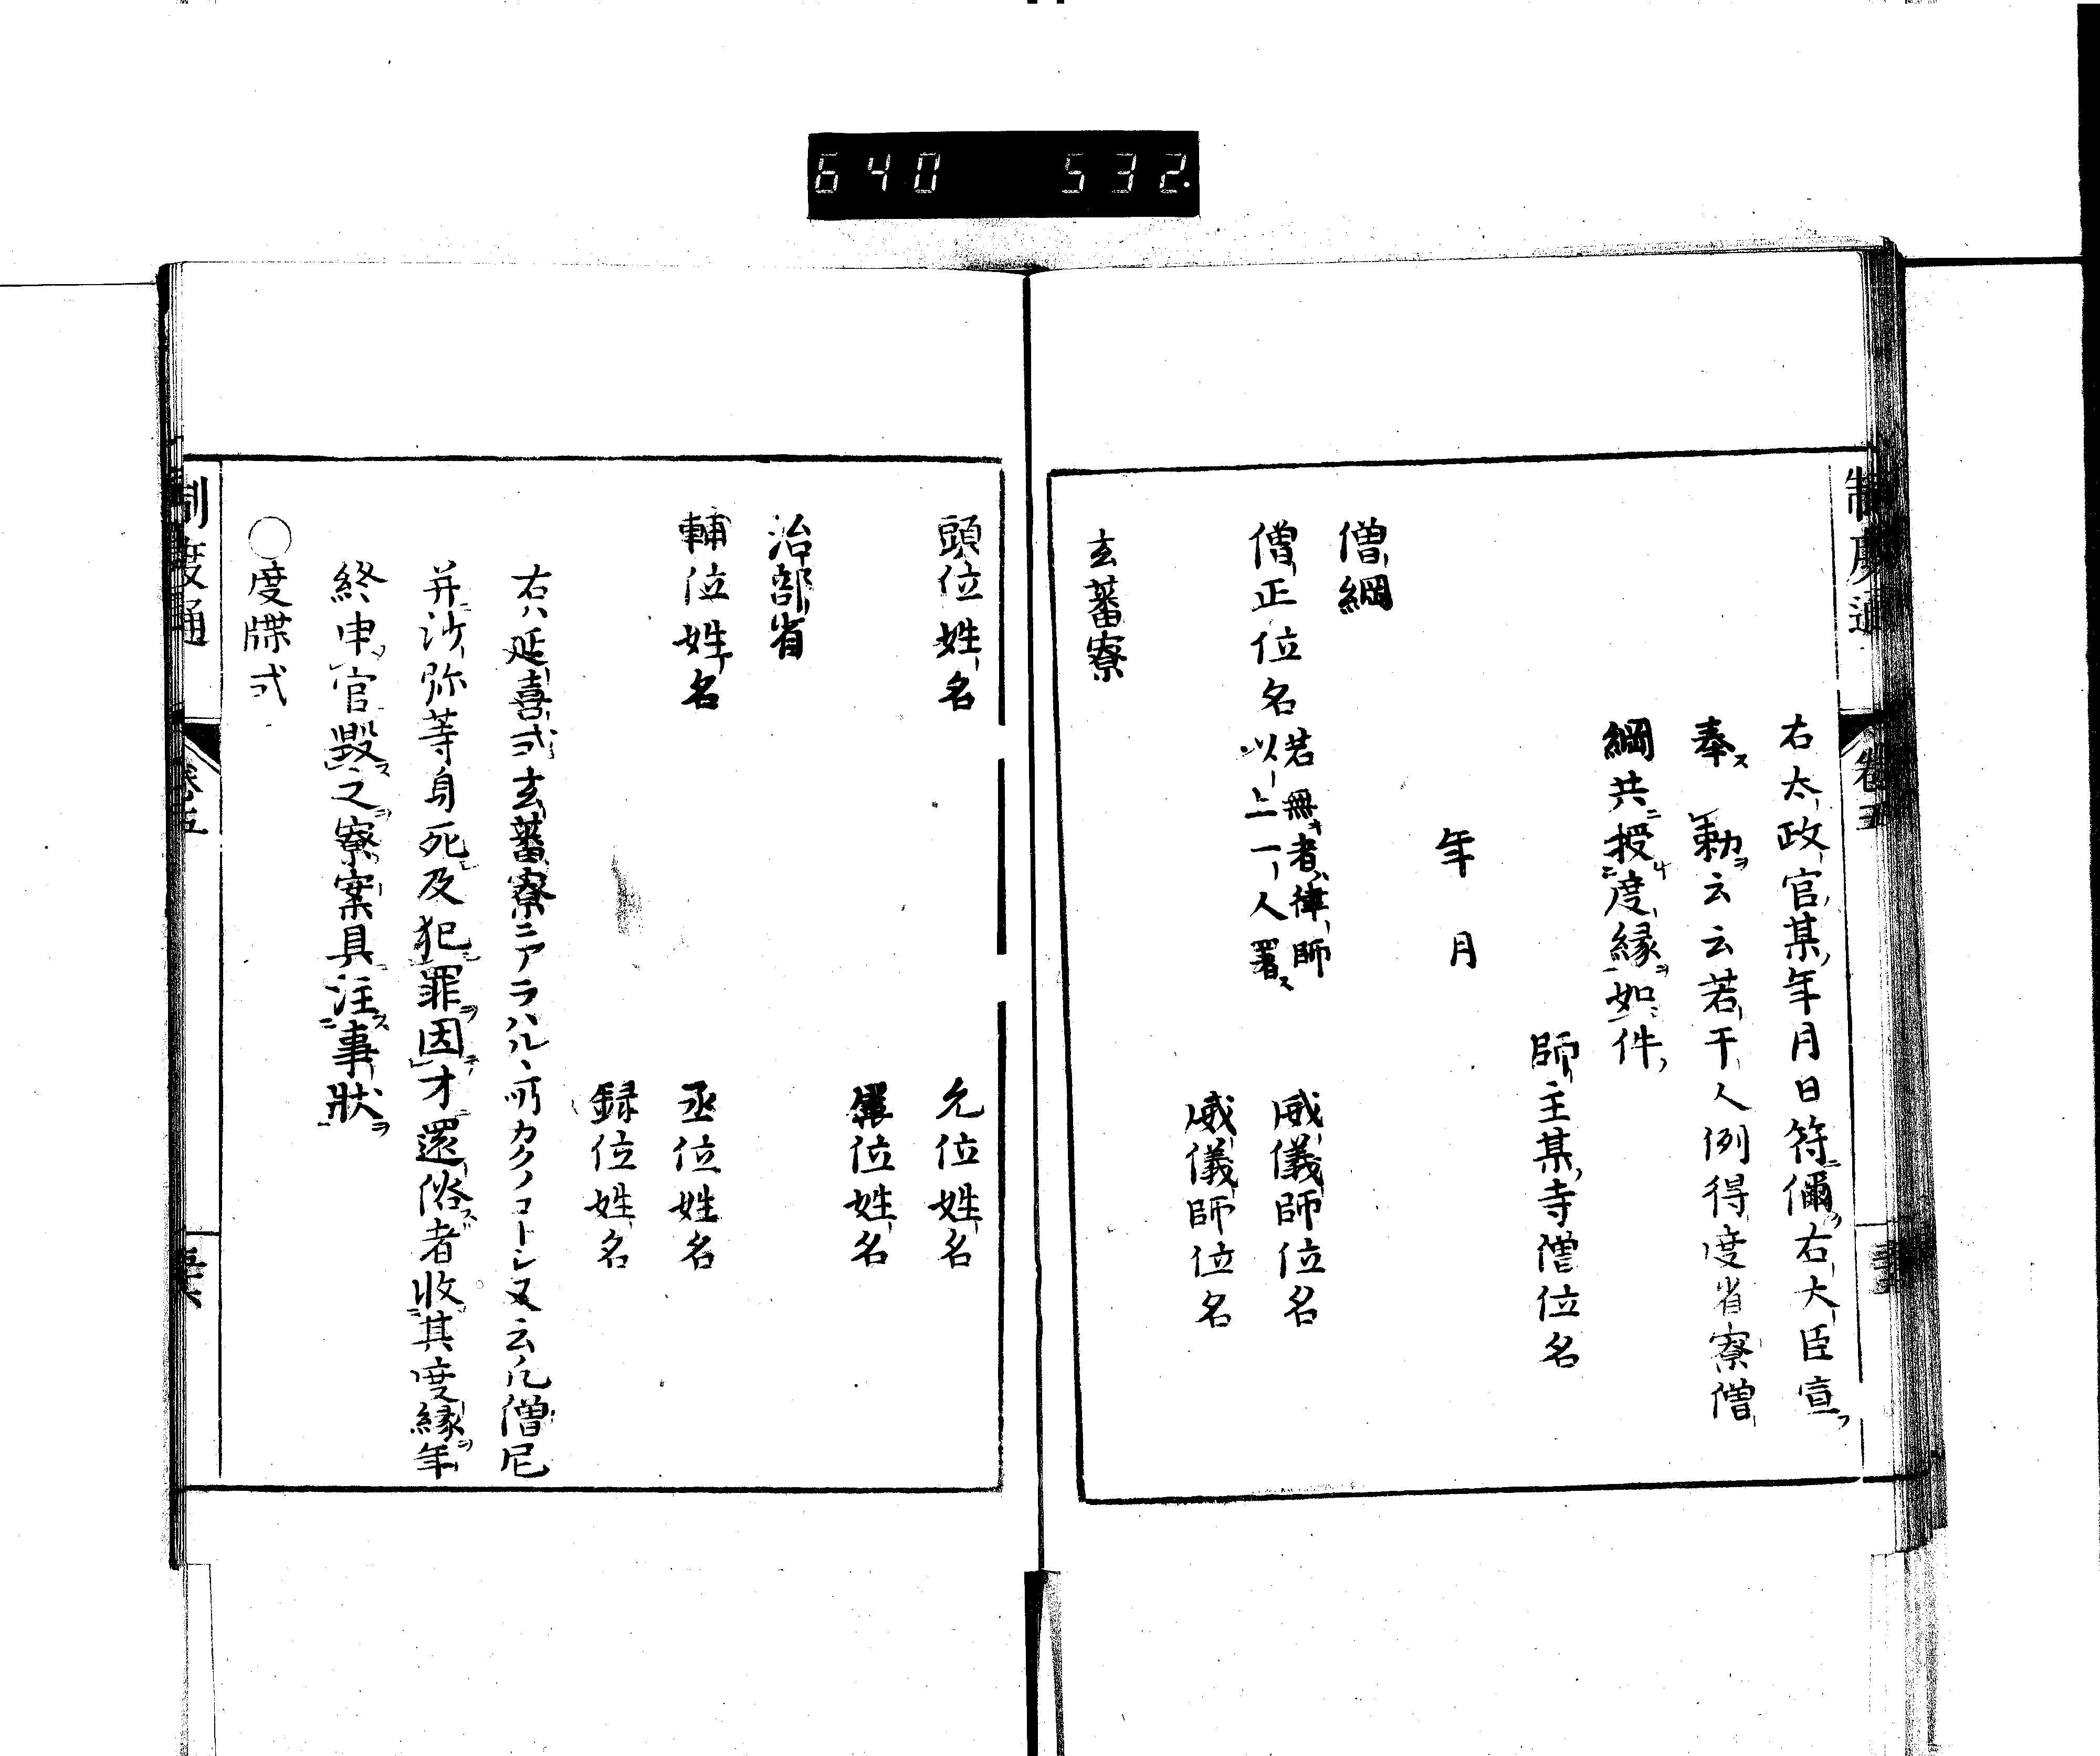 640 532.
制度通 卷五
右太政官某年月日符偁右大臣宣
奉 勅云云若干人例得度省寮僧
綱共授度縁如件
師主某寺僧位名
年 月
僧綱
僧正位名若無者律師以上一人署 威儀師位名
威儀師位名
玄蕃寮
頭位姓名 允位姓名
属位姓名
治部省
輔位姓名 丞位姓名
録位姓名
右ハ延喜式玄蕃寮ニアラハルヽ所カクノコトシ又云凡僧尼
并沙弥等身死及犯罪因才還俗者收其度縁年
終申官毀之寮案具注事状
〇度牒式
制度通 卷五